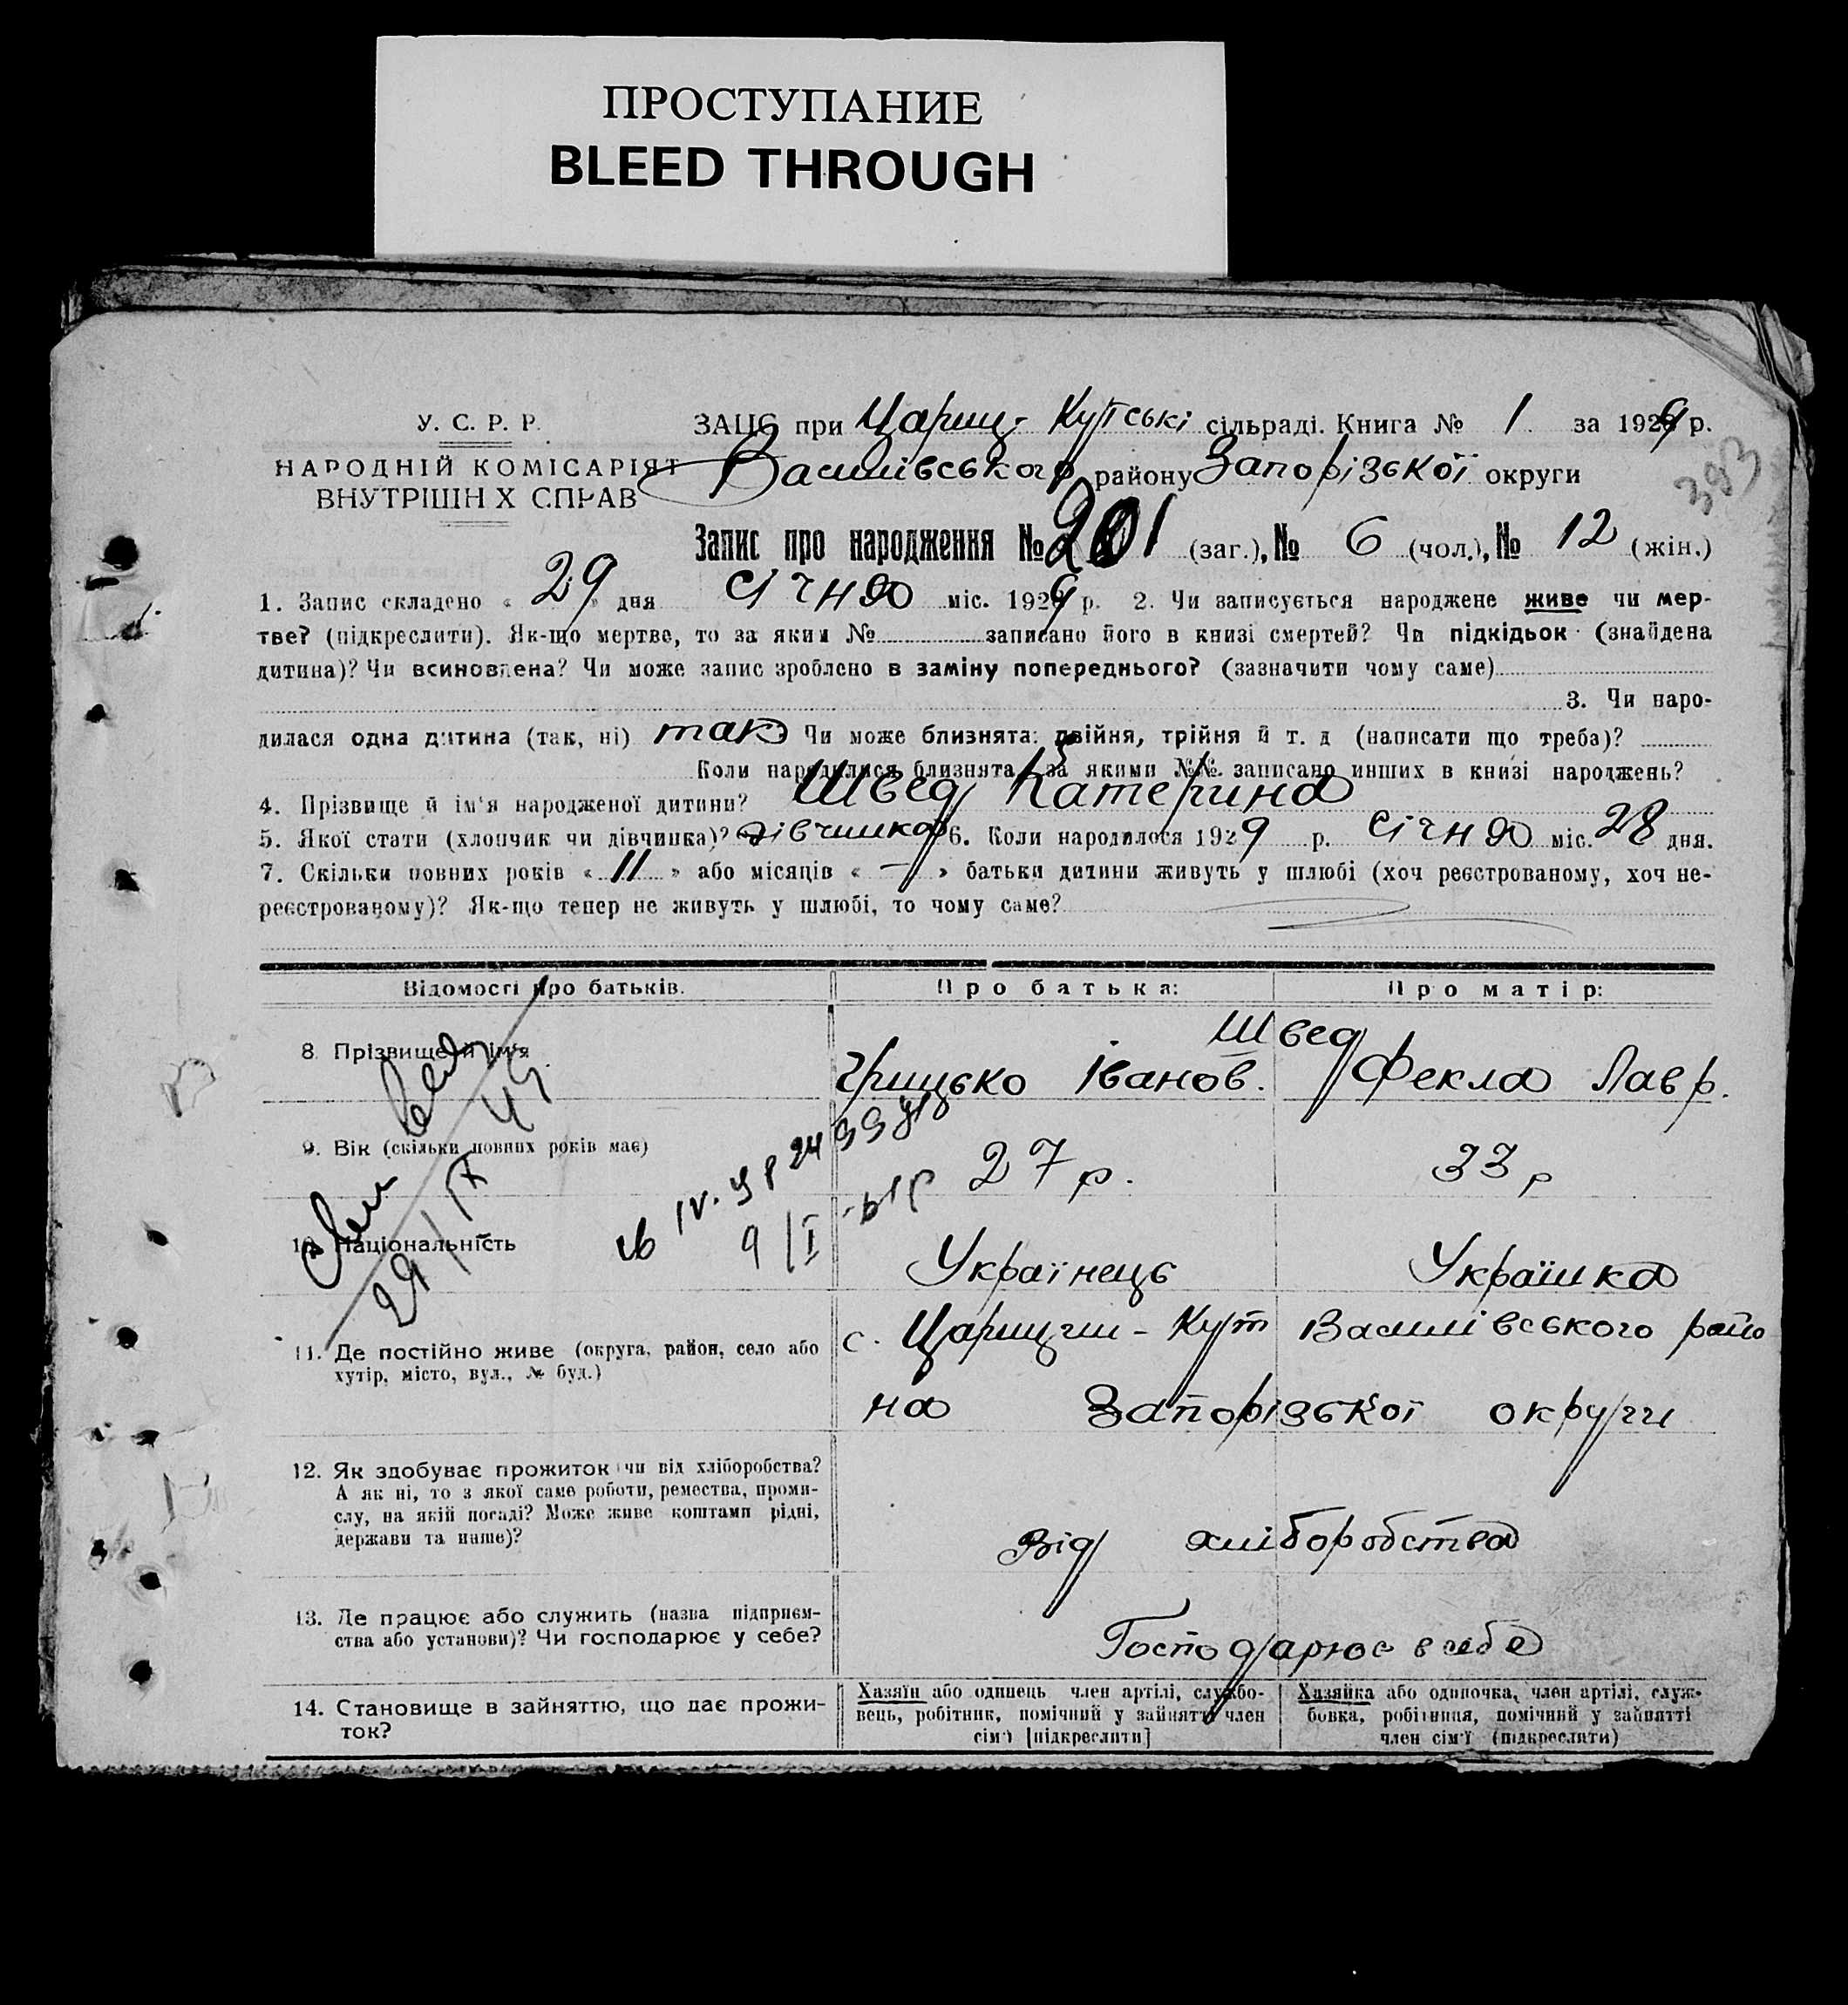 ПРОСТУПАНИЕ
BLEED THROUGH
У. С. Р. Р.
НАРОДНІЙ КОМІСАРІЯТ
ВНУТРІШН Х СПРАВ
ЗАЦС при Цариц-Кутські сільраді. Книга № 1 за 1929 р.
Василівського району Запорізької округи
393
Запис про народження № 201 (заг.), № 6 (чол.), № 12 (жін.)
1. Запис складено « 29 » дня січня міс. 1929 р. 2. Чи записується народжене живе чи мер-
тве? (підкреслити). Як-що мертве, то за яким № записано його в книзі смертей? Чи підкідьок (знайдена
дитина)? Чи всиновлена? Чи може запис зроблено в заміну попереднього? (зазначити чому саме)
3. Чи наро-
дилася одна дитина (так, ні) так Чи може близнята: двійня, трійня й т. д (написати що треба)?
Коли народилися близнята, за якими №№ записано инших в книзі народжень?
4. Прізвище й ім'я народженої дитини? Швед Катерина
5. Якої стати (хлопчик чи дівчинка)? дівчинка 6. Коли народилося 1929 р. січня міс. 28 дня.
7. Скільки повних років « 11 » або місяців « — » батьки дитини живуть у шлюбі (хоч реєстрованому, хоч не-
реєстрованому)? Як-що тепер не живуть у шлюбі, то чому саме?
Відомості про батьків.
Про батька:
Про матір:
8. Прізвище й ім'я
Швед
Грицько Іванов.
Фекла Лавр.
9. Вік (скільки повних років має)
27 р.
33 р
10. Національність
Українець
Українка
9/I
11. Де постійно живе (округа, район, село або
хутір, місто, вул., № буд.)
с. Царицин-Кут Василівського райо
на Запорізької округи
12. Як здобуває прожиток (чи від хліборобства?
А як ні, то з якої саме роботи, ремества, проми-
слу, на якій посаді? Може живе коштами рідні,
держави та инше)?
Від хліборобства
13. Де працює або служить (назва підприєм-
ства або установи)? Чи господарює у себе?
Господарює в себе
14. Становище в зайняттю, що дає прожи-
ток?
Хазяїн або одинець член артілі, службо-
вець, робітник, помічний у зайнятті член
сім'ї [підкреслити]
Хазяйка або одиночка, член артілі, служ-
бовка, робітниця, помічний у зайнятті
член сім'ї (підкреслити)